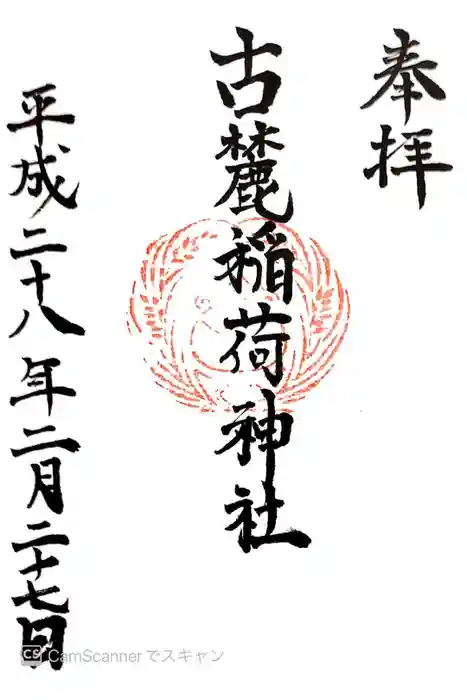 奉拝
古麓稲荷神社
平成二十八年二月二十七日
CS CamScannerでスキャン